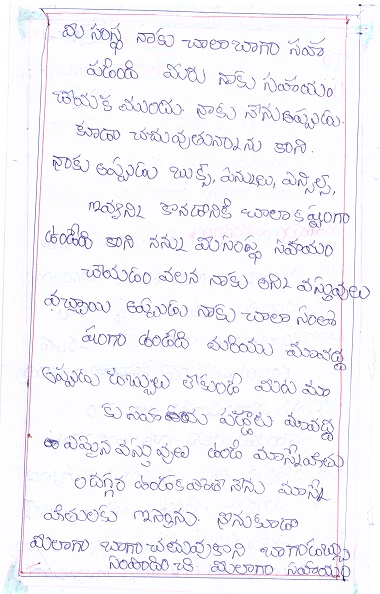 మి సంస్థ నాకు చాలా బాగా సహా
పడింది మిరు నాకు సహయం
చేయక ముందు. నాకు నేను అప్పుడు.
కూడా చదువుతున్నాను కాని.
నాకు అప్పుడు బుక్స్, పెన్నులు, పెన్సిల్స్,
ఇవ్వన్ని కొనడానికి చాలా కష్టంగా
ఉండేది కాని నన్ను మి సంస్థ సహయం
చేయడం వలన నాకు అన్ని వస్తువులు
వచ్చాయి ఇప్పుడు నాకు చాలా సంతో
షంగా ఉండేది మరియు మావద్ద
అప్పుడు డబ్బులు లేకుండే మిరు మా
కు సహాయ పడ్డారు మావద్ద
ఏమైన వస్తువులు ఉండి మా స్నేహితు
ల దగ్గర ఉండకపోతే నేను మా స్నే
హితులకు ఇస్తాను. నేను కూడా
మిలాగా బాగా చదువుకొని బాగా డబ్బు
సంపాదించి మిలాగా సహాయం